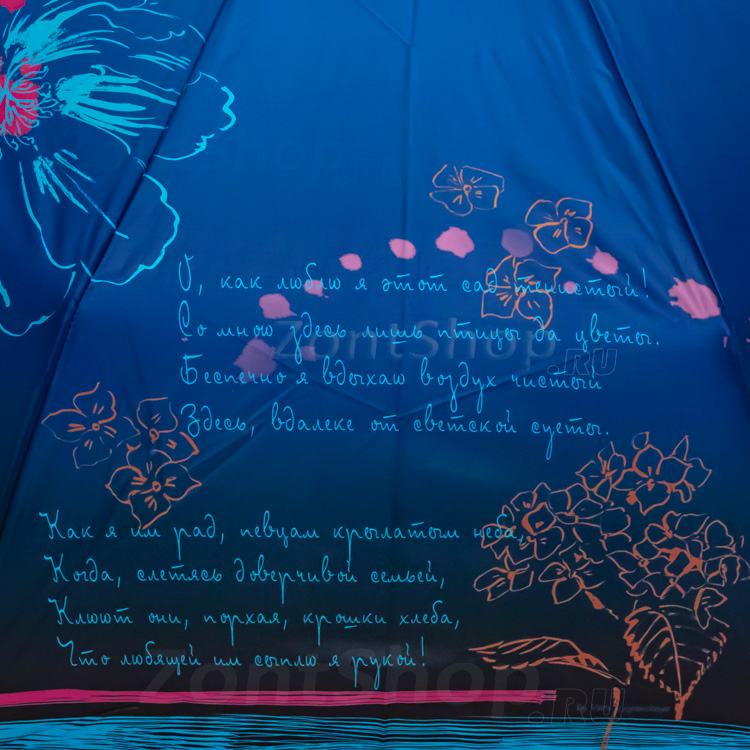 О, как люблю я этот сад тенистый!
Со мною здесь лишь птицы да цветы.
Беспечно я вдыхаю воздух чистый
Здесь, вдалеке от светской суеты.
Как я им рад, певцам крылатым неба,
Когда, слетясь доверчивой семьей,
Клюют они, порхая, крошки хлеба,
Что любящей им сыплю я рукой!
ZontShop.RU
ZontShop.RU
ZontShop.RU